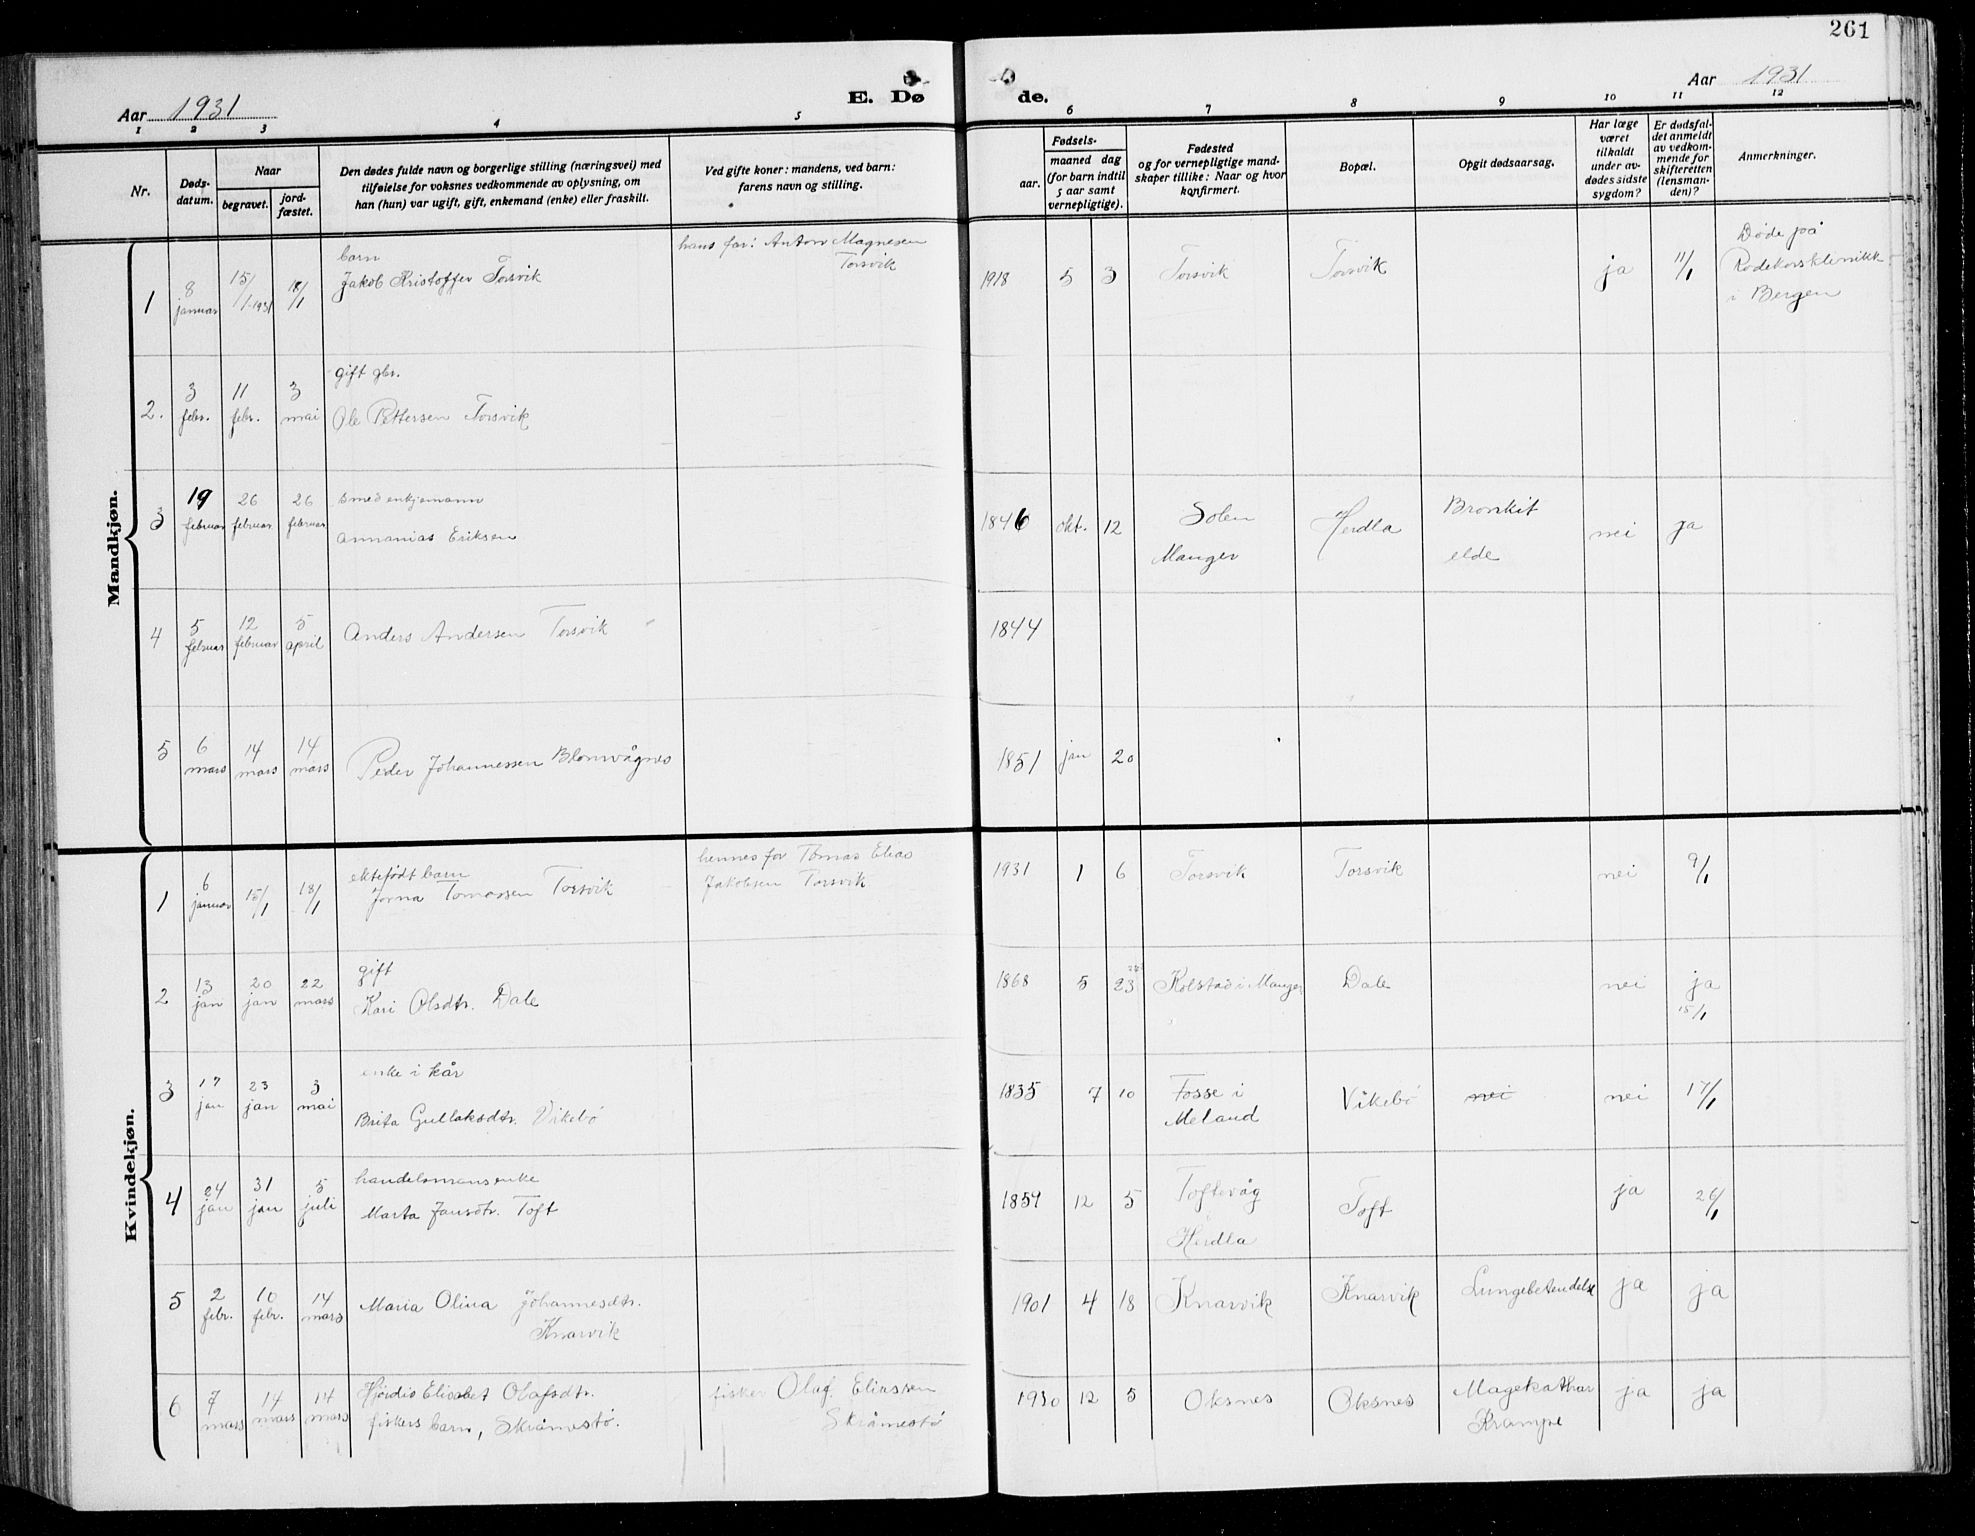 261
Aar 1931
E. Dø
de.
Aar 1931
1 2 3 4 5 6 7 8 9 10 11 12
Nr.
Døds-
datum.
Naar
begravet.
jord-
fæstet.
Den dødes fulde navn og borgerlige stilling (næringsvei) med
tilføielse for voksnes vedkommende av oplysning, om
han (hun) var ugift, gift, enkemand (enke) eller fraskilt.
Ved gifte koner: mandens, ved barn:
farens navn og stilling.
Fødsels-
aar.
maaned dag
(for barn indtil
5 aar samt
vernepligtige).
Fødested
og for vernepligtige mand-
skaper tillike: Naar og hvor
konfirmert.
Bopæl.
Opgit dødsaarsag.
Har læge
været
tilkaldt
under av-
dødes sidste
sygdom?
Er dødsfal-
det anmeldt
av vedkom-
mende for
skifteretten
(lensman-
den)?
Anmerkninger.
Mandkjøn.
1
8
januar
15/
/1-1931
18/1
barn
Jakob Kristoffer Torsvik
hans far: Anton Magnesen
Torsvik
1918 5 3 Torsvik Torsvik ja 11/1
Døde på
Rødekorsklinikk
i Bergen
2.
3
febr.
11
febr.
3
mai
gift gbr.
Ole Pettersen Torsvik
3
19
februar
26
februar
26
februar
smed enkjemann
Annanias Eriksen
1846 okt. 12
Solem
Manger
Herdla
Bronkit
elde
nei ja
4
5
februar
12
februar
5
april
Anders Andersen Torsvik
1844
5
6
mars
14
mars
14
mars
Peder Johannessen Blomvågnes
1851 jan 20
Kvindekjøn.
1
6
januar
15/1
18/1
ektefødt barn
Jorna Tomassen Torsvik
hennes far Tomas Elias
Jakobsen Torsvik
1931 1 6 Torsvik Torsvik nei 9/1
2
13
jan
20
jan
22
mars
gift
Kari Olsdtr. Dale
1868 5 23 Kolstad i Manger Dale nei ja
15/1
3
17
jan
23
jan
3
mai
enke i kår
Brita Gullaksdtr. Vikebø
1835 7 10
Fosse i
Meland
Vikebø nei nei 17/1
4
24
jan
31
jan
5
juli
handelsmans enke
Marta Jansdtr. Toft
1859 12 5
Toftevåg
Herdla
Toft ja 26/1
5
2
febr.
10
febr.
14
mars
Maria Olina Johannesdtr.
Knarvik
1901 4 18 Knarvik Knarvik Lungebetendelse ja ja
6
7
mars
14
mars
14
mars
Hjördis Elisabet Olafsdtr.
fiskers barn, Skråmestö.
fisker Olaf Eliassen
Skråmestö
1930 12 5 Oksnes Oksnes
Magekathar
Krampe
ja ja